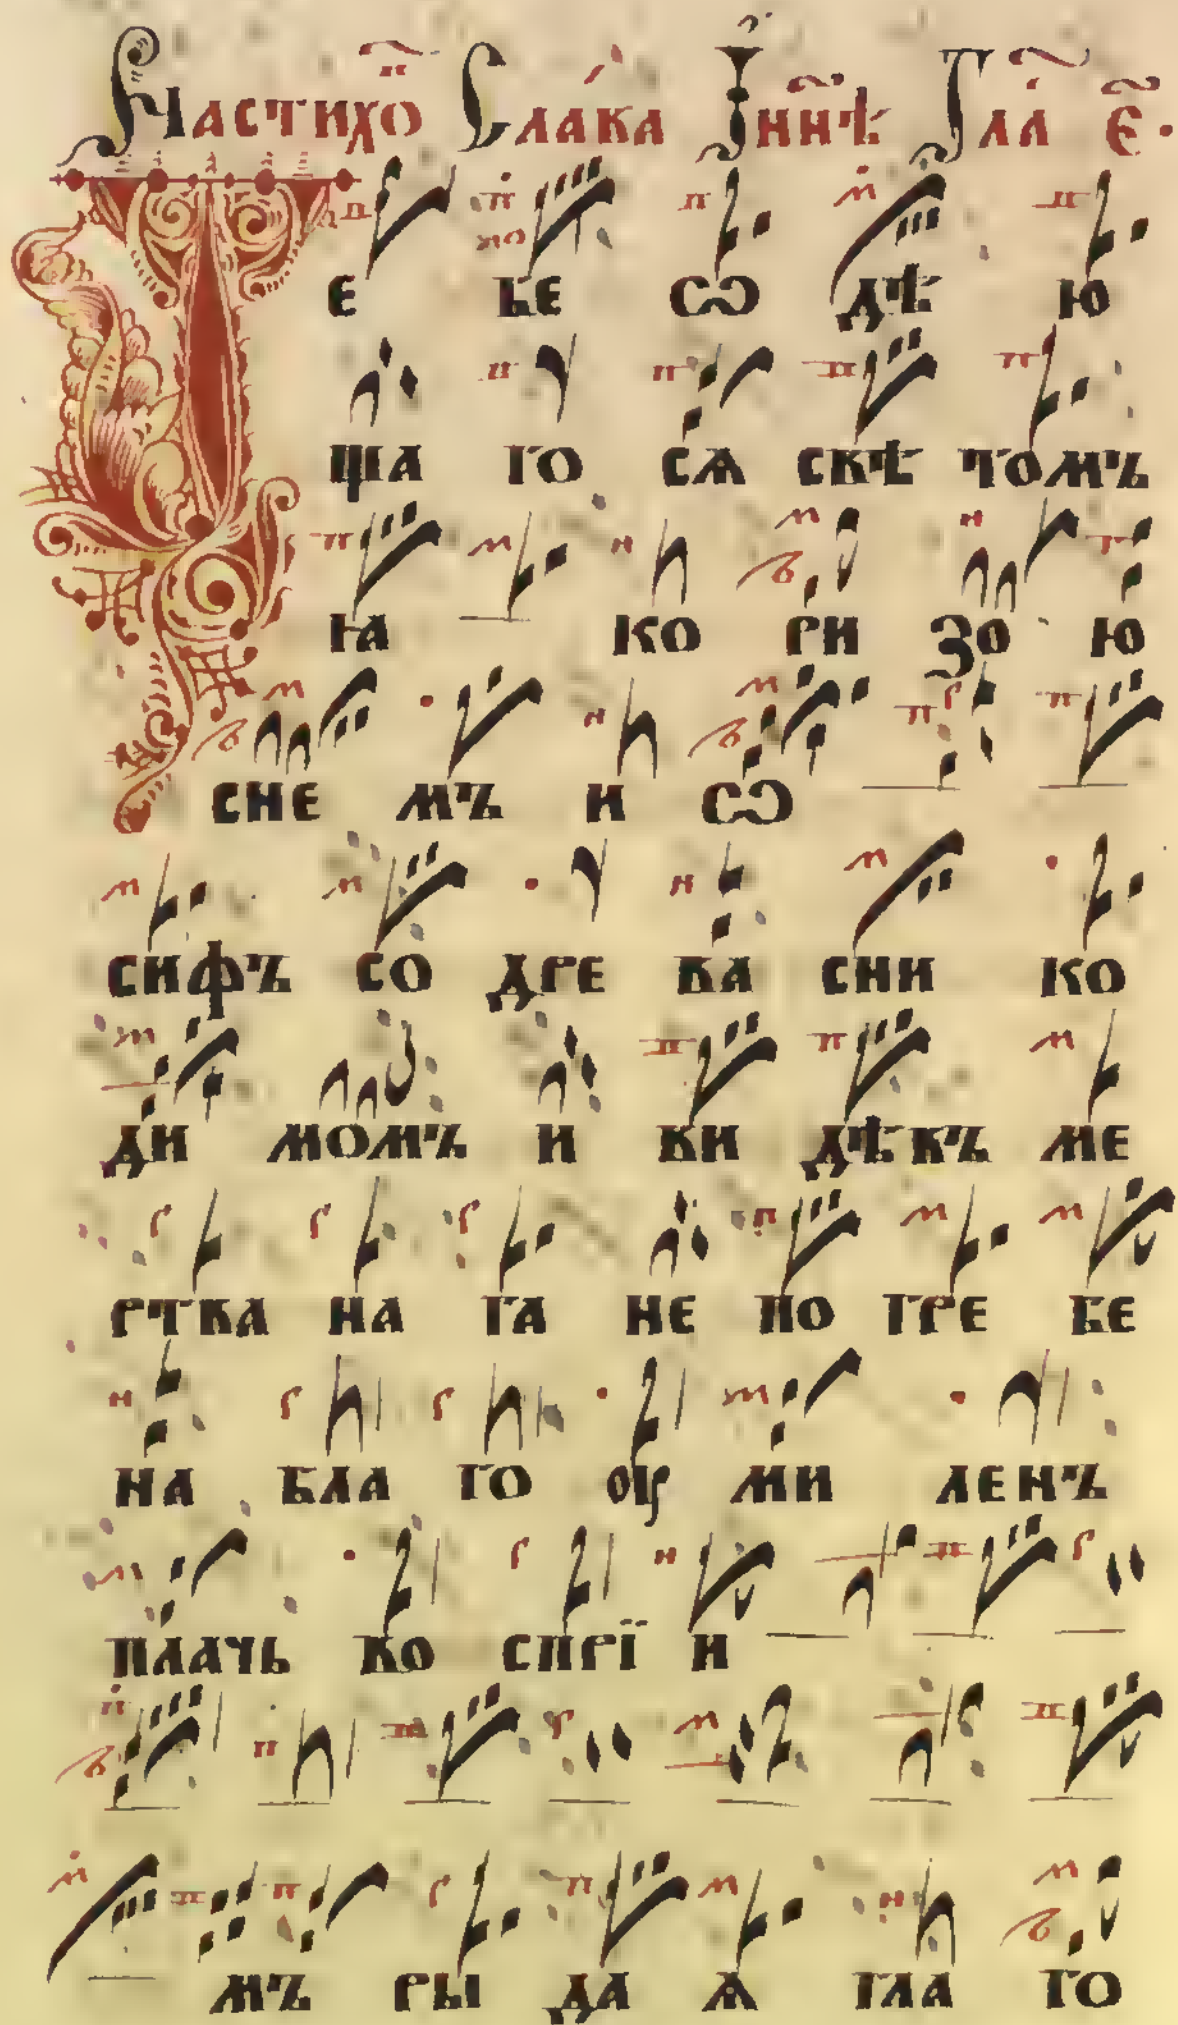 На стихо Слава Инн҃ѣ Гла є҃.
Т е бе сѡ дѣ ю
ща го сѧ свѣ томъ
ꙗ ко ри зо ю
сне мъ и сѡ
сифъ со дре ва сни ко
ди момъ и ви дѣвъ ме
ртва на га не по гре бе
на бла го оу ми ленъ
плачь во спрї и
мъ ры да ѧ гла го